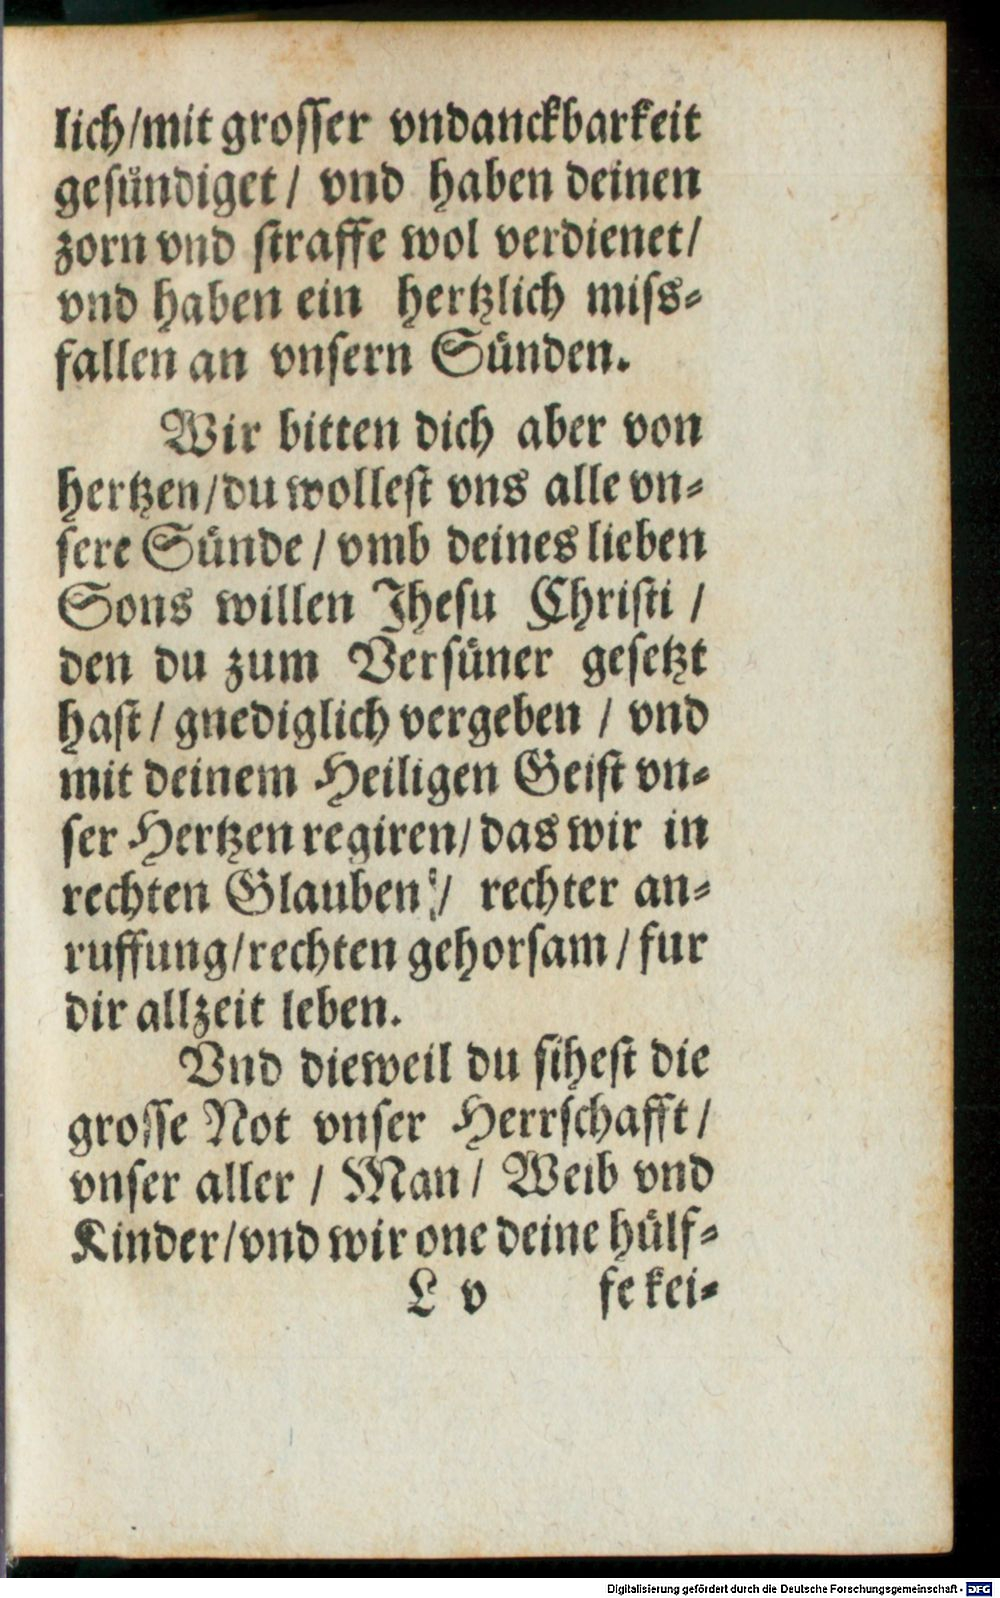 lich/mit grosser vndanckbarkeit
gesündiget/ vnd haben deinen
zorn vnd straffe wol verdienet/
vnd haben ein hertzlich miss-
fallen an vnsern Sünden.
Wir bitten dich aber von
hertzen/du wollest vns alle vn-
sere Sünde/ vmb deines lieben
Sons willen Jhesu Christi/
den du zum Versüner gesetzt
hast/ gnediglich vergeben/ vnd
mit deinem Heiligen Geist vn-
ser Hertzen regiren/das wir in
rechten Glauben/ rechter an-
ruffung/rechten gehorsam/fur
dir allzeit leben.
Vnd dieweil du sihest die
grosse Not vnser Herrschafft/
vnser aller/ Man/ Weib vnd
Kinder/vnd wir one deine hülf-
L v fe kei-
Digitalisierung gefördert durch die Deutsche Forschungsgemeinschaft - DFG